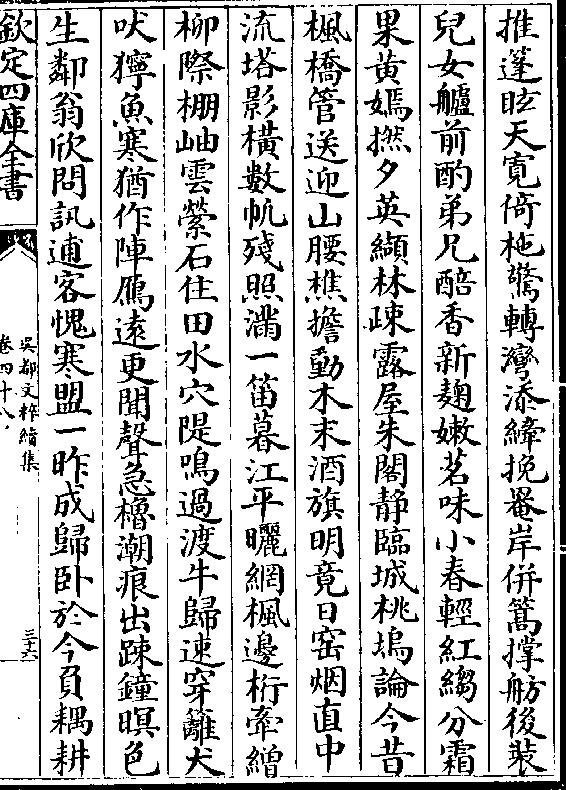 推蓬眩天寛倚柂驚轉灣添緯挽罨岸併篙撐舫後裝
兒女艫前酌弟兄醅香新麹嫩茗味小春輕紅縐分霜
果黄嫣撚夕英纈林疎露屋朱閣静臨城桃塢論今昔
楓橋管送迎山腰樵擔動木末酒旗明竟日窑烟直中
流塔影横數帆殘照滿一笛暮江平曬網楓邊桁牽繒
柳際棚岫雲縈石住田水穴隄鳴過渡牛歸速穿籬犬
吠獰魚寒猶作陣鴈遠更聞聲急櫓潮痕出踈鐘暝色
生鄰翁欣問訊逋客愧寒盟一昨成歸卧於今負耦耕
欽定四庫全書
吳都文粹續集
卷四十八
三十六